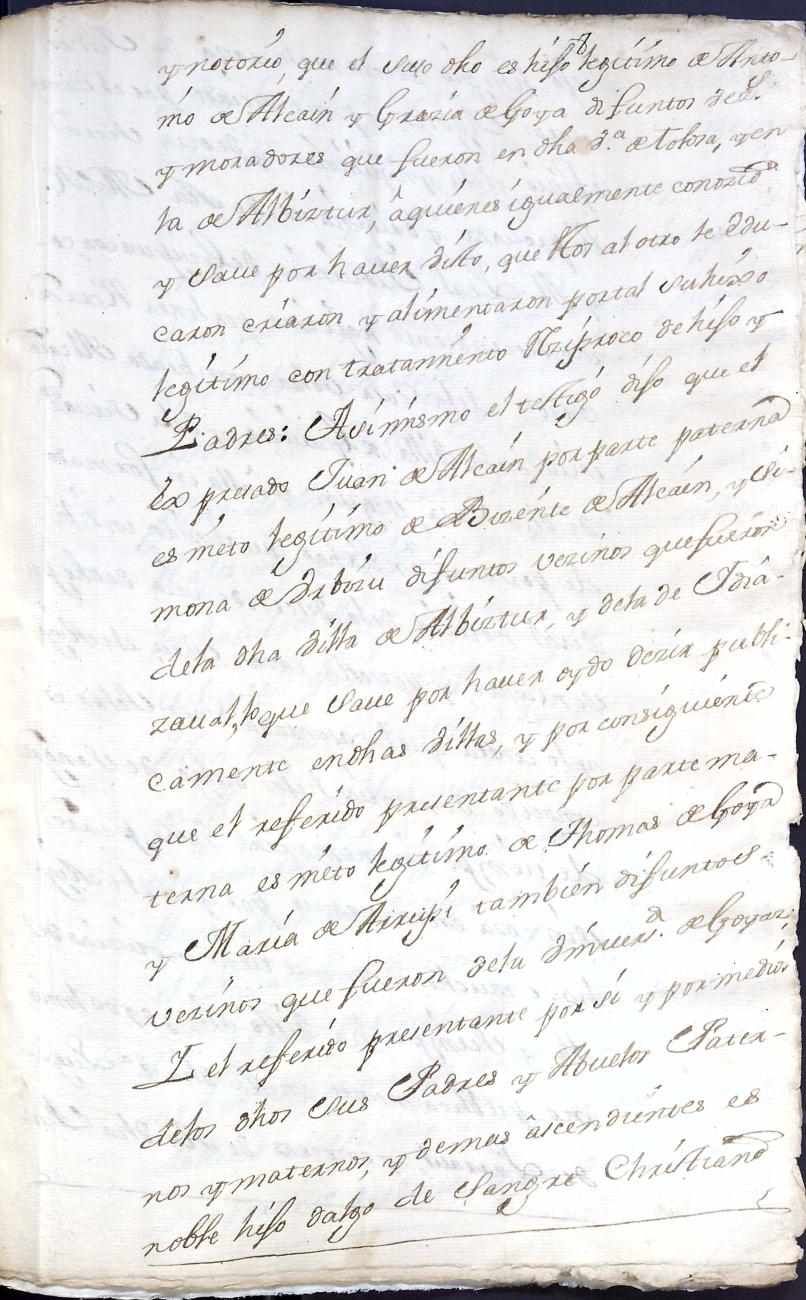 y notorio, que el suso dho es hijo legitimo de Anto-
nio de Alcain y Grazia de Goya difuntos vez.s
y moradores que fueron en dha v.a de tolosa, y en
la de Albiztur, à quienes igualmente conozio
y save por haver visto, que los al otro le edu-
caron criaron y alimentaron por tal su hixo
legitimo con tratamiento reziproco de hijo y
Padres: Asimismo el testigo dijo que el
expresado Juan de Alcain por parte paterna
es nieto legitimo de Bizente de Alcain, y Si-
mona de Vrbizu difuntos vezinos que fueron
dela dha villa de Albiztur, y dela de Idia-
zaual, lo que save por haver oydo dezir publi-
camente en dhas villas, y por consiguiente
que el referido presentante por parte ma-
terna es nieto legitimo de Thomas de Goya
y Maria de Arrupi tambien difuntos
vezinos que fueron dela Vniver.d de Goyaz
Y el referido presentante por si y por medio
delos dhos sus Padres y Abuelos Pater-
nos y maternos, y demas àscendientes es
noble hijo dalgo de Sangre Christiano